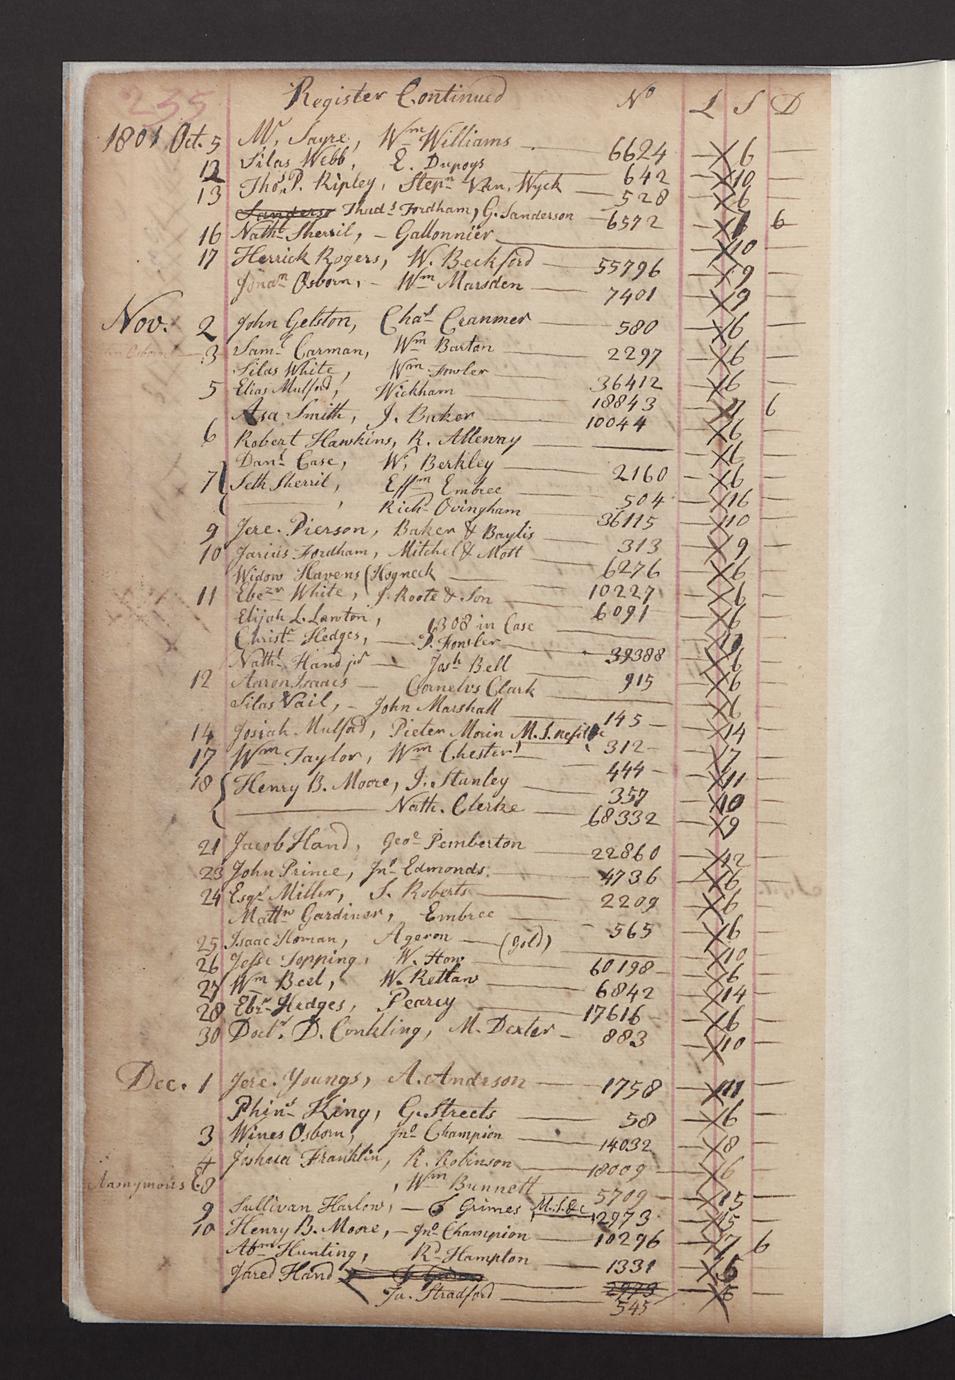 235 Register Continued No L S D
1801 Oct. 5 Mr. Sayre, Wm Williams 6624 — 6 —
12 Silas Webb, E. Dupoys 642 — 10 —
13 Thos. P. Ripley, Stepn Van, Wyck 528 — 6 —
Sanderso Thads Fordham, G. Sanderson 6572 6
16 Nathl Sherril, — Gallonnier — 10 —
17 Herrick Rogers, W. Beckford 55796 — 9 —
Jonan Osborn, — Wm Marsden 7401 — 9 —
Nov. 2 John Gelston, Chas Cranmer 580 — 6 —
3 Saml Carman, Wm Barton 2297 — 6 —
Silas White, Wm Fowler 36412 — 6 —
5 Elias Mulford, Wickham 18843 — 7 6
Asa Smith, J. Baker 10044 — 6 —
6 Robert Hawkins, R. Alleway — 6 —
Danl Case, W. Berkley 2160 — 6 —
7 Seth Sherril, Effm Embree 504 — 16 —
, Richd Ovingham 36115 — 10 —
9 Jere. Pierson, Baker & Baylis 313 — 9 —
10 Jarius Fordham, Mitchel & Mott 6276 — 6 —
Widow Havens (Hogneck 10227 — 6 —
11 Ebezr White, J. Roote & Son 6091 — 6 —
Elijah L. Lawton, 1308 in Case — 9 —
Christr Hedges, — P. Fowler 39388 — 6 —
Nathl Hand jr — Josh Bell 915 — 6 —
12 Aaron Isaacs — Cornelus Clark — 6 —
Silas Vail, — John Marshall 145 — 14 —
14 Josiah Mulford, Pieter Morin M. S. 312 — 7 —
17 Wm Taylor, Wm Chester 444 — 11 —
18 Henry B. Moore, J. Stanley 357 — 10 —
——— Nath. Clerke 68332 — 9 —
21 Jacob Hand, Geoe Pemberton 22860 — 12 —
23 John Prince, Jno Edmonds. 4736 — 6 —
24 Esqr Miller, S. Roberts 2209 — 6 —
Mattw Gardiner, Embree 565 — 16 —
25 Isaac Homan, Ageron — (gold) — 10 —
26 Jesse Topping, W. How 60198 — 6 —
27 Wm Beel, W. Rettaw 6842 — 14 —
28 Ebr Hedges, Pearcy 17616 — 16 —
30 Doctr. D. Conkling, M. Dexter 883 — 10 —
Dec. 1 Jere. Youngs, A. Andrson 1758 — 11 —
Phins King, G. Streets 58 — 6 —
3 Wines Osborn, Jno Champion 14032 — 8 —
4 Joshua Franklin, R. Robinson 18009 — 6 —
Anonymous 8 , Wm Bunnett 5709 — 15 —
9 Sullivan Harlow, — Grimes M. S. &c 2973 — 15 —
10 Henry B. Moore, — Jno Champion 10296 — 7 6
Abm Hunting, Rd Hampton 1331 — 6 —
Jared Hand 2973 — 6 —
Ja. Stradford 545